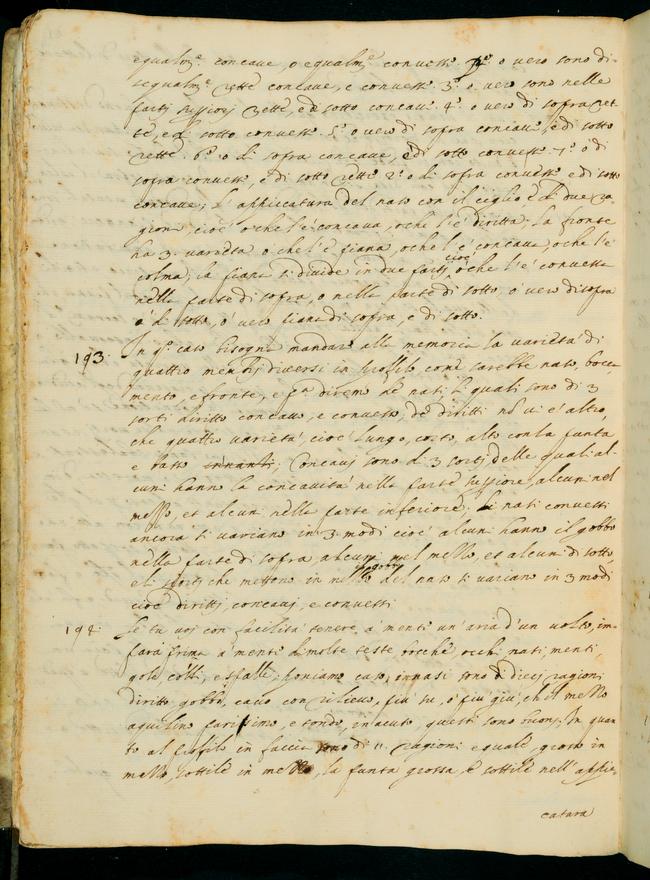 equalm.e concave, o equalm.e convesse. 2.o o vero sono di-
sequalm.e rette concave, e convesse. 3.o o vero sono nelle
parti sup[er]iorj rette, ed sotto concave. 4.o o vero di sopra ret
te, e di sotto convesse. 5.o o vero di sopra concave, e di sotto
rette. 6.o o di sopra concave, e di sotto convesse. 7.o o di
sopra convesse, e di sotto rette 8.o o di sopra convesse e di sotto
concave; L'appiccatura del naso con il ciglio è di due ra
gioni cioè o che l'è concava, o che l'è diritta; La fronte
ha 3. varietà o che l'è piana, o che l'è concava, o che l'è
colma; la piana si divide in due partj cioè, o che l'è convessa
nella parte di sopra, o nella parte di sotto, o vero di sopra
e di sotto, o vero piana di sopra, e di sotto.
193. In q.o caso bisogna mandare alla memoria la varietà di
quattro membrj diversi in profilo come sarebbe naso, bocca
mento, e fronte, e p.a diremo de nasi, li quali sono di 3
sorti diritto concavo, e convesso, de diritti no vi è altro,
che quattro varietà, cioè lungo, corto, alto con la punta
e basso innanti; Concavj sono di 3 sortj delle quali al-
cuni hanno la concavità nella parte superiore, alcuni nel
messo, et alcuni nella parte inferiore; Li nasi convessi
ancora si variano in 3. modi cioè alcuni hanno il gobbo
nella parte di sopra, alcuni nel messo, et alcuni di sotto,
e li sportj che mettono in messo il gobbo del naso si variano in 3 modi
cioè dirittj, concavj, e convessi.
194. Se tu voj con facilità tenere a' menti un'aria d'un volto, im-
para prima a' menti di molte teste, bocche, occhi, nasi, menti
gole colli, e spalle; poniamo caso, i nasi sono di diecj ragioni
diritto, gobbo, cavo con rilievo, più su, o più giù, ch'il messo
aquilino, parissimo, e tondo, in acuto questi sono buonj. In quan
to al profilo in faccia sono di 11. ragioni eguale, grosso in
messo, sottile in messo, la punta grossa, e sottile nell'appic-
catura